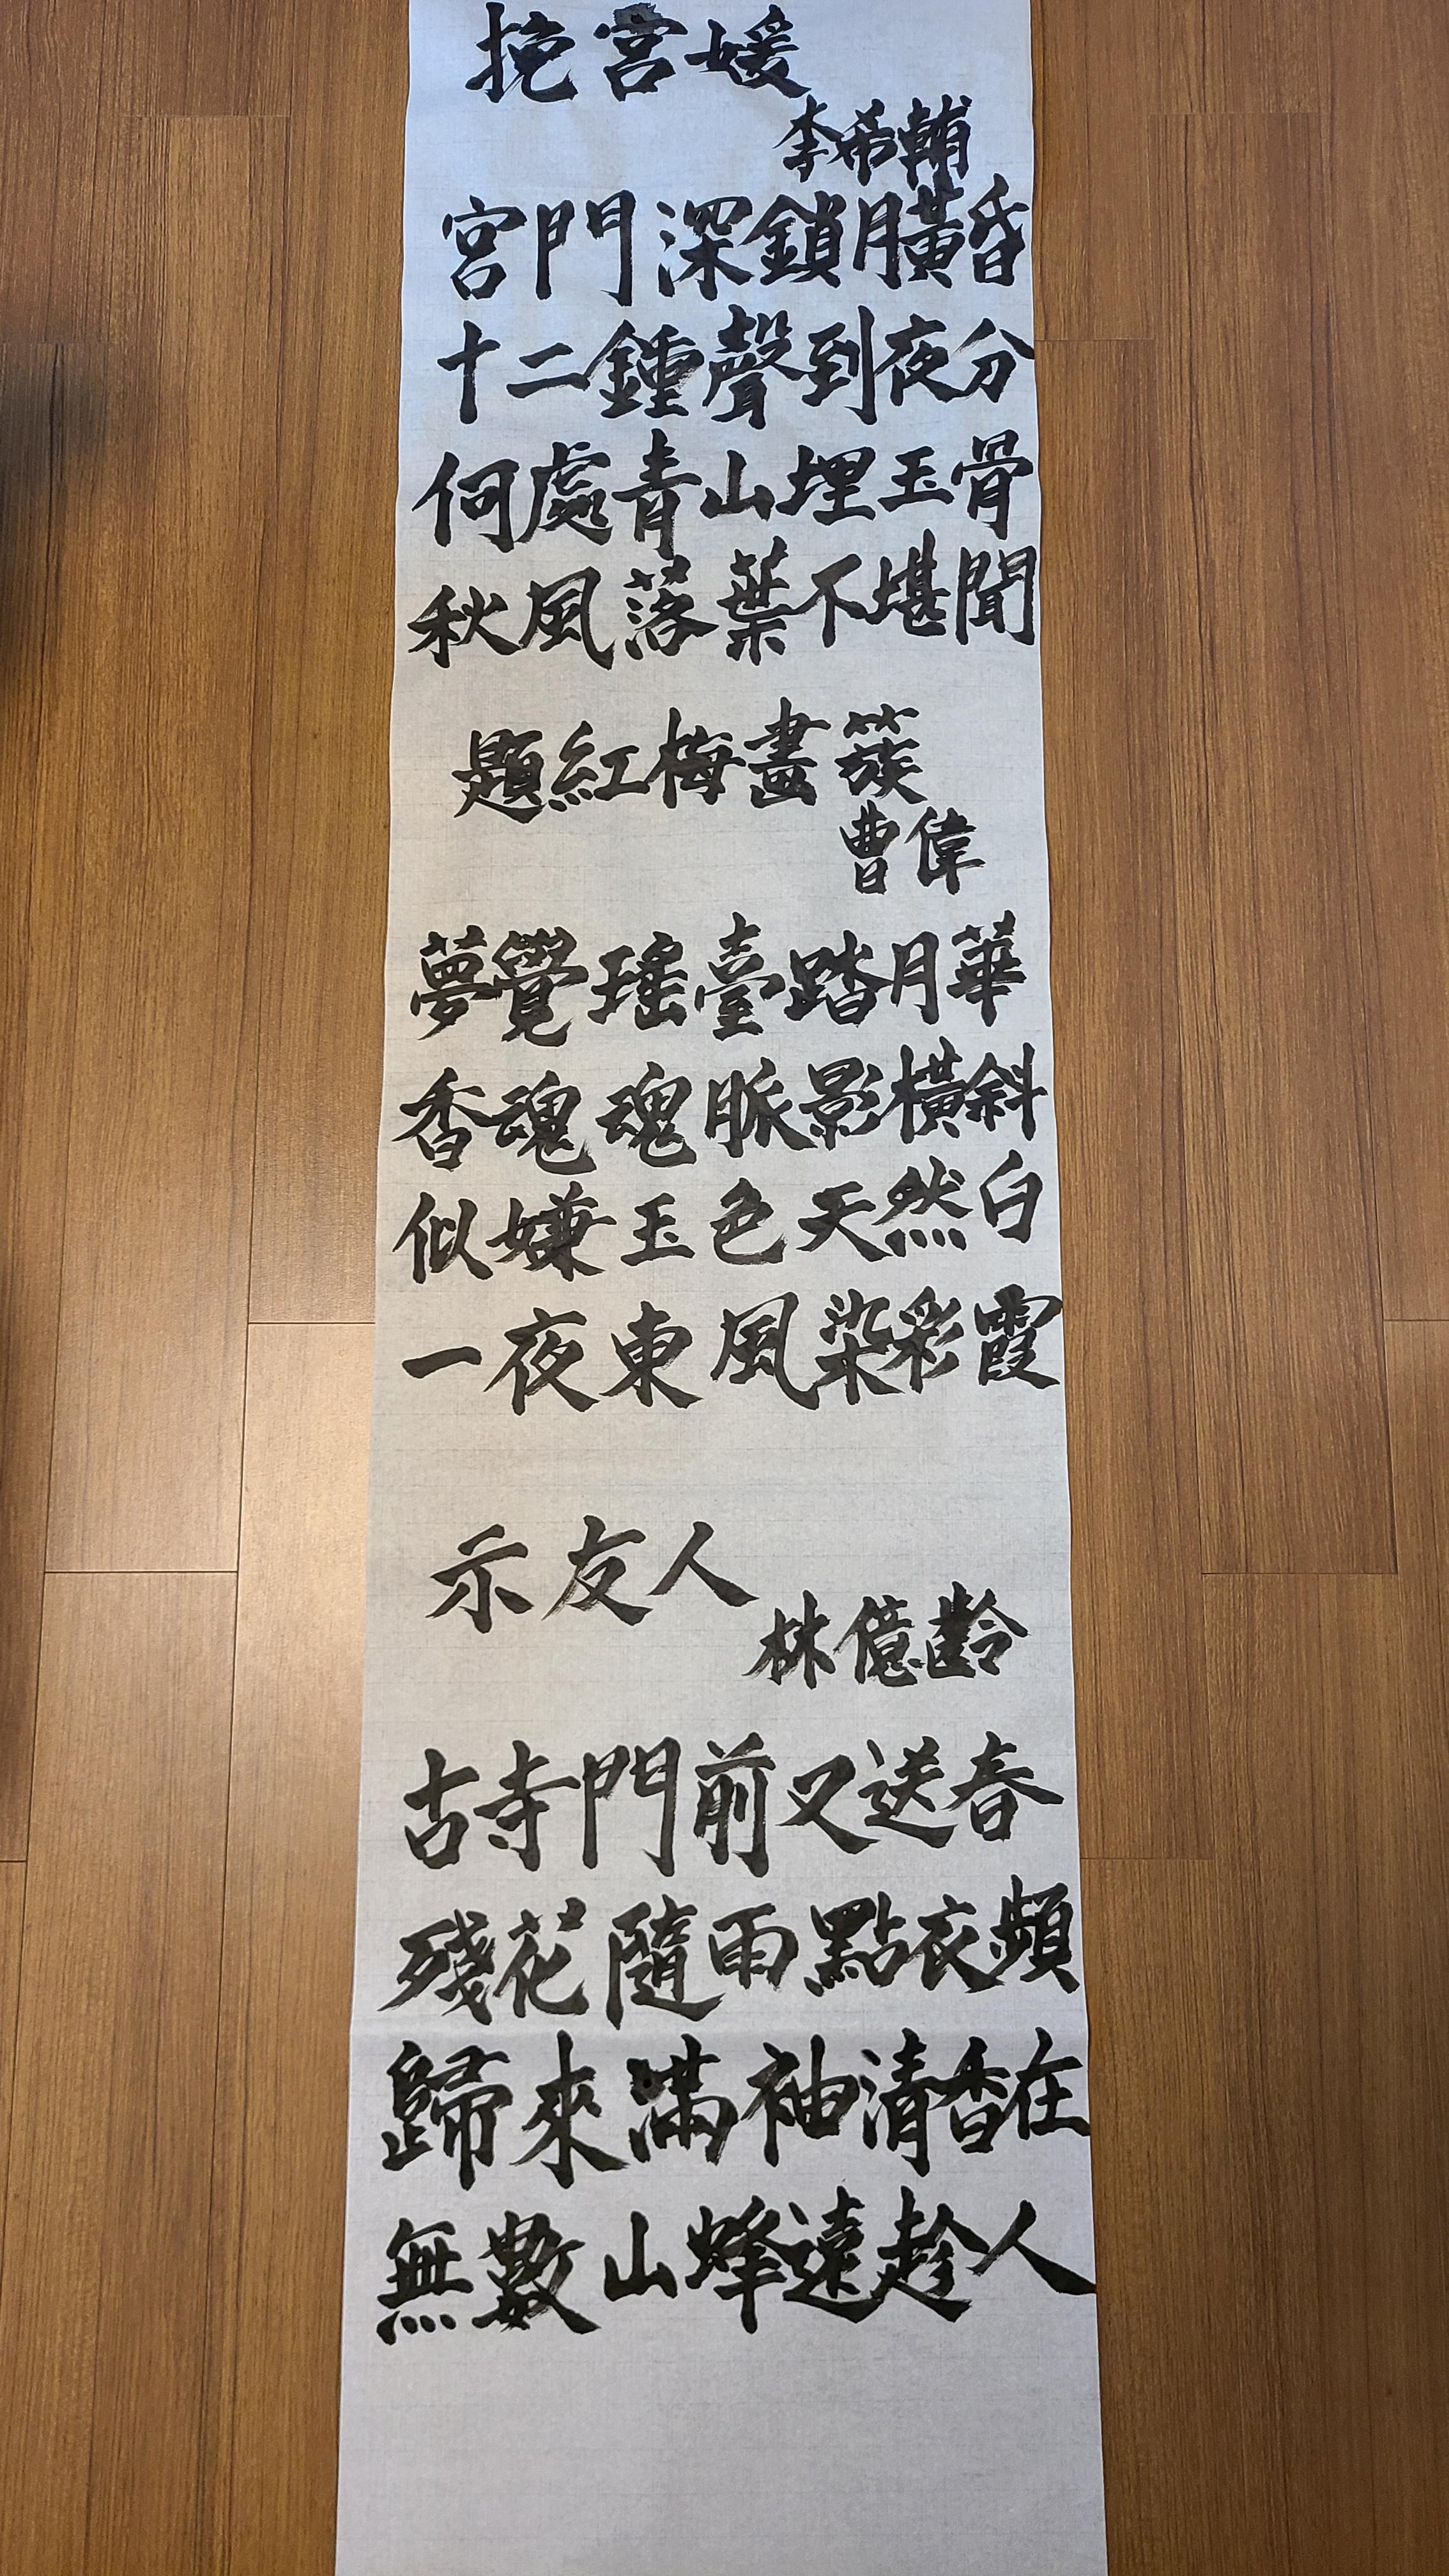 挽宮媛
李希輔
宮門深鎖月黃昏
十二鍾聲到夜分
何處青山埋玉骨
秋風落葉不堪聞
題紅梅畫簇
曹偉
夢覺瑤臺踏月華
香魂魂脈影橫斜
似嫌玉色天然白
一夜東風染彩霞
示友人
林億齡
古寺門前又送春
殘花隨雨點衣頻
歸來滿袖清香在
無數山蜂遠趁人